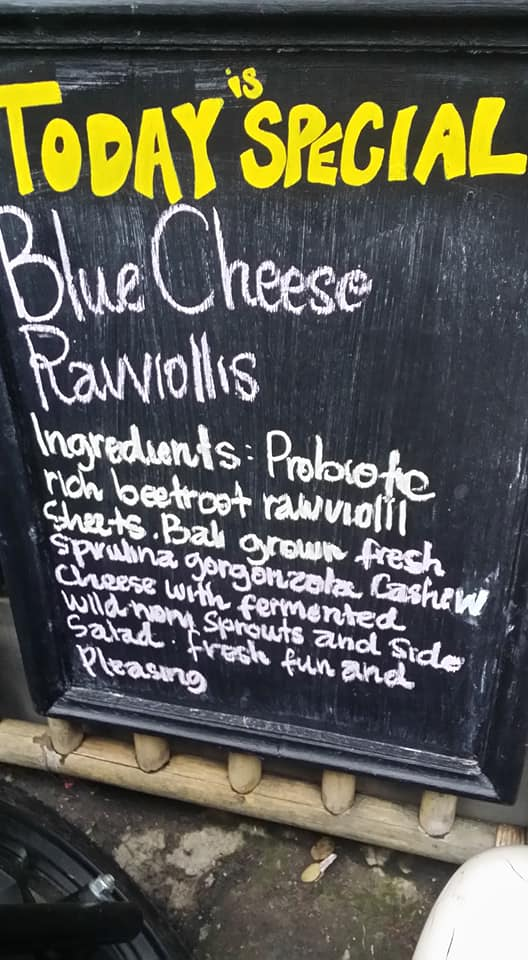 TODAY is SPECIAL
Blue Cheese
Rawviollis
Ingredients: Probiotic
rich beetroot rawviolli
sheets. Bali grown fresh
spirulina gorgonzola Cashew
cheese with fermented
wild noni sprouts and side
salad. fresh fun and
pleasing